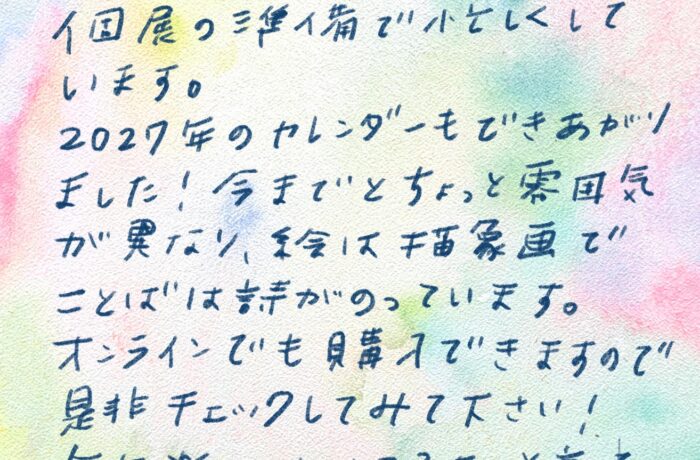 個展の準備で忙しくして
います。
2027年のカレンダーもできあがり
ました!今までとちょっと雰囲気
が異なり、絵は描象画で
ことばは詩がのっています。
オンラインでも購入できますので
是非チェックしてみて下さい!